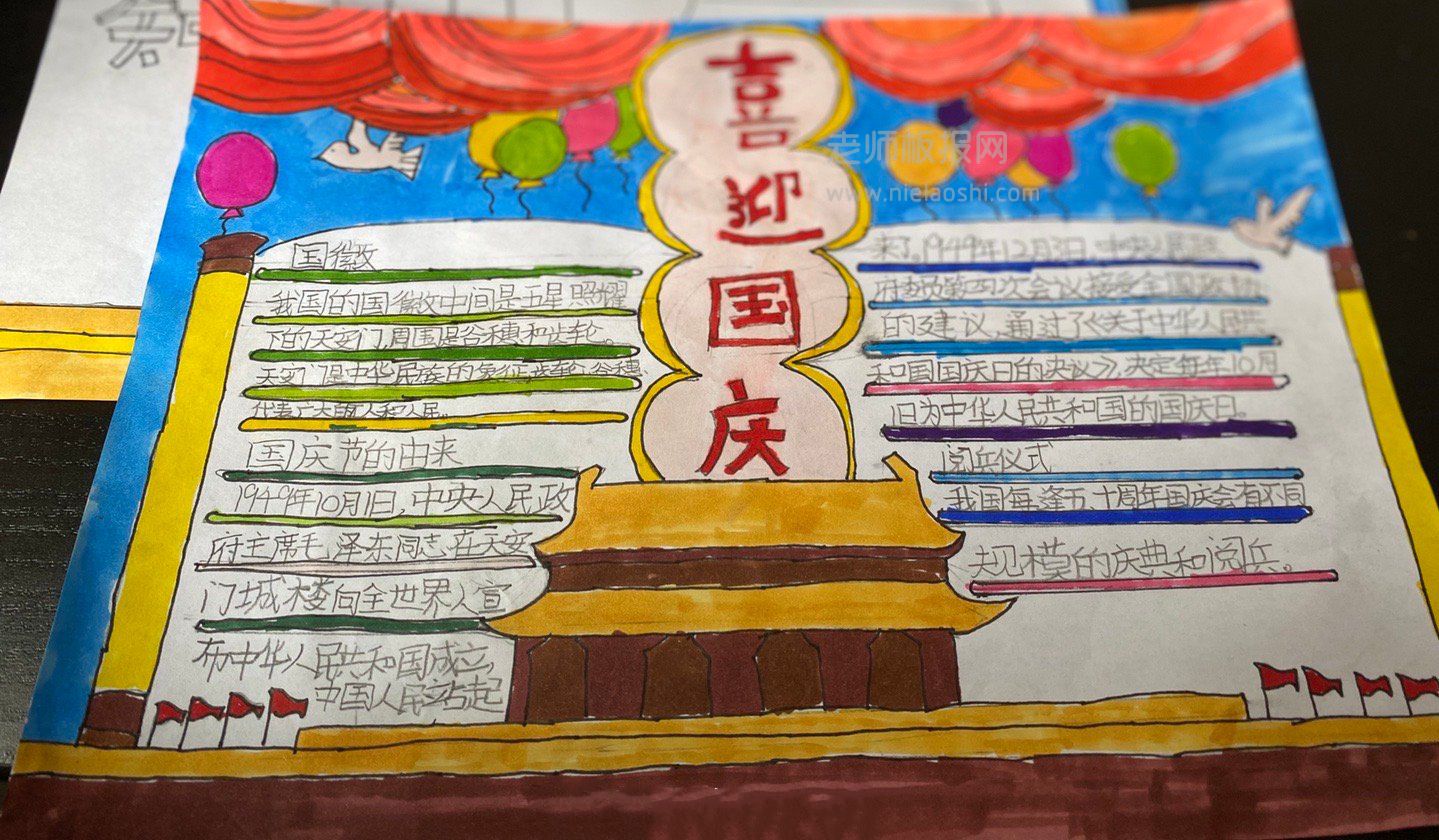 喜迎国庆
老师板报网
www.nielaoshi.com
国徽
我国的国徽中间是五星照耀
下的天安门,周围是谷穗和齿轮。
天安门是中华民族的象征,齿轮、谷穗
代表广大 人和人民。
国庆节的由来
1949年10月1日,中央人民政
府主席毛泽东同志在天安
门城楼向全世界人宣
布中华人民共和国成立,
中国人民站起
来了。1949年12月3日,中央人民政
府 第四次会议接受全国政协
的建议,通过了《关于中华人民共
和国国庆日的决议》,决定每年10月
1日为中华人民共和国的国庆日。
阅兵仪式
我国每逢五、十周年国庆会有不同
规模的庆典和阅兵。